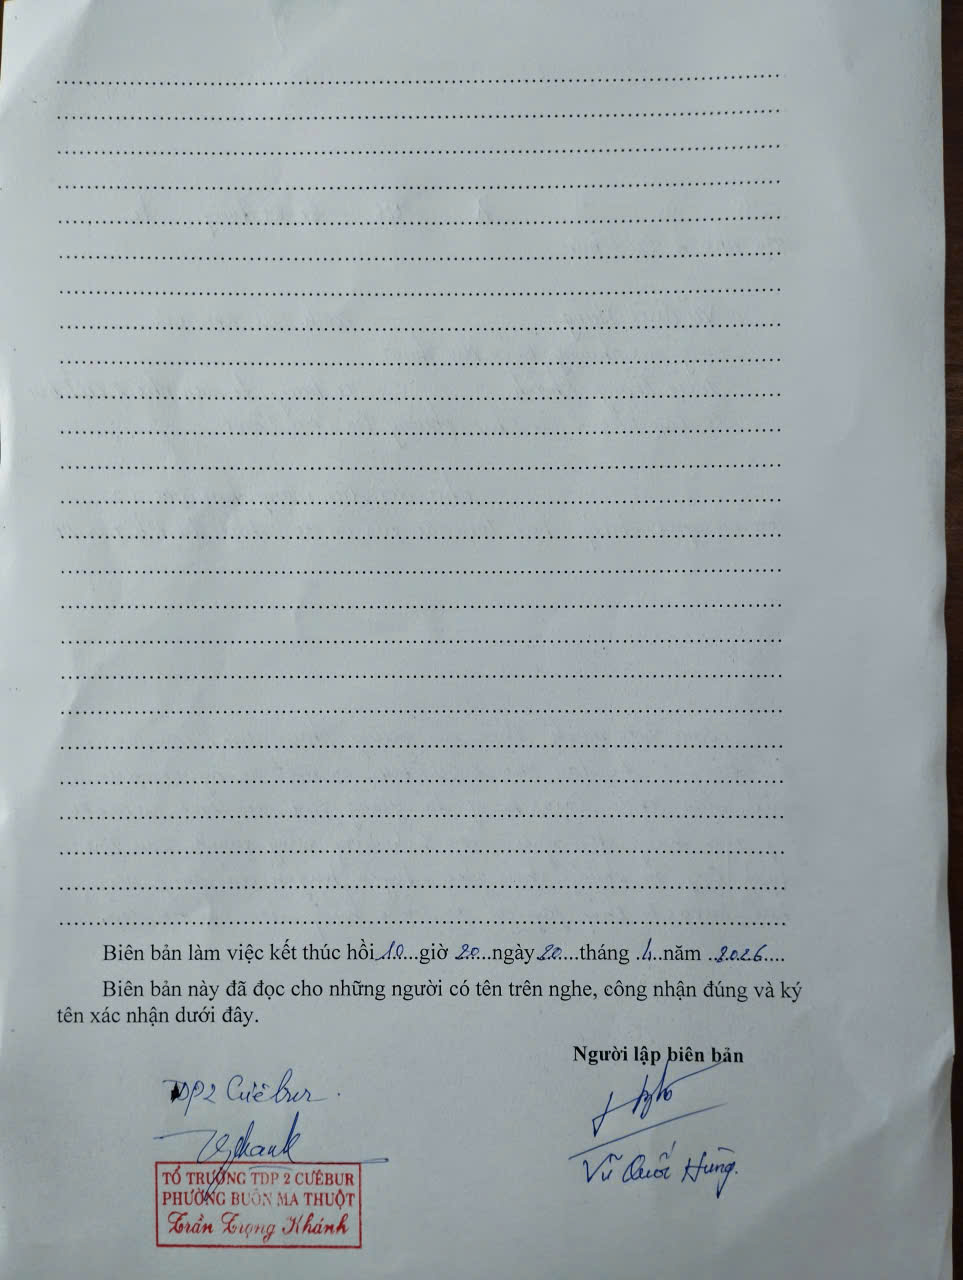 Biên bản làm việc kết thúc hồi 10 giờ 20 ngày 20 tháng 4 năm 2026
Biên bản này đã đọc cho những người có tên trên nghe, công nhận đúng và ký
tên xác nhận dưới đây.
Người lập biên bản
TDP2 Cuêbur
Khanh
TỔ TRƯỞNG TDP 2 CUÊBUR
PHƯỜNG BUÔN MA THUỘT
Trần Trọng Khánh
Vũ Quốc Hùng